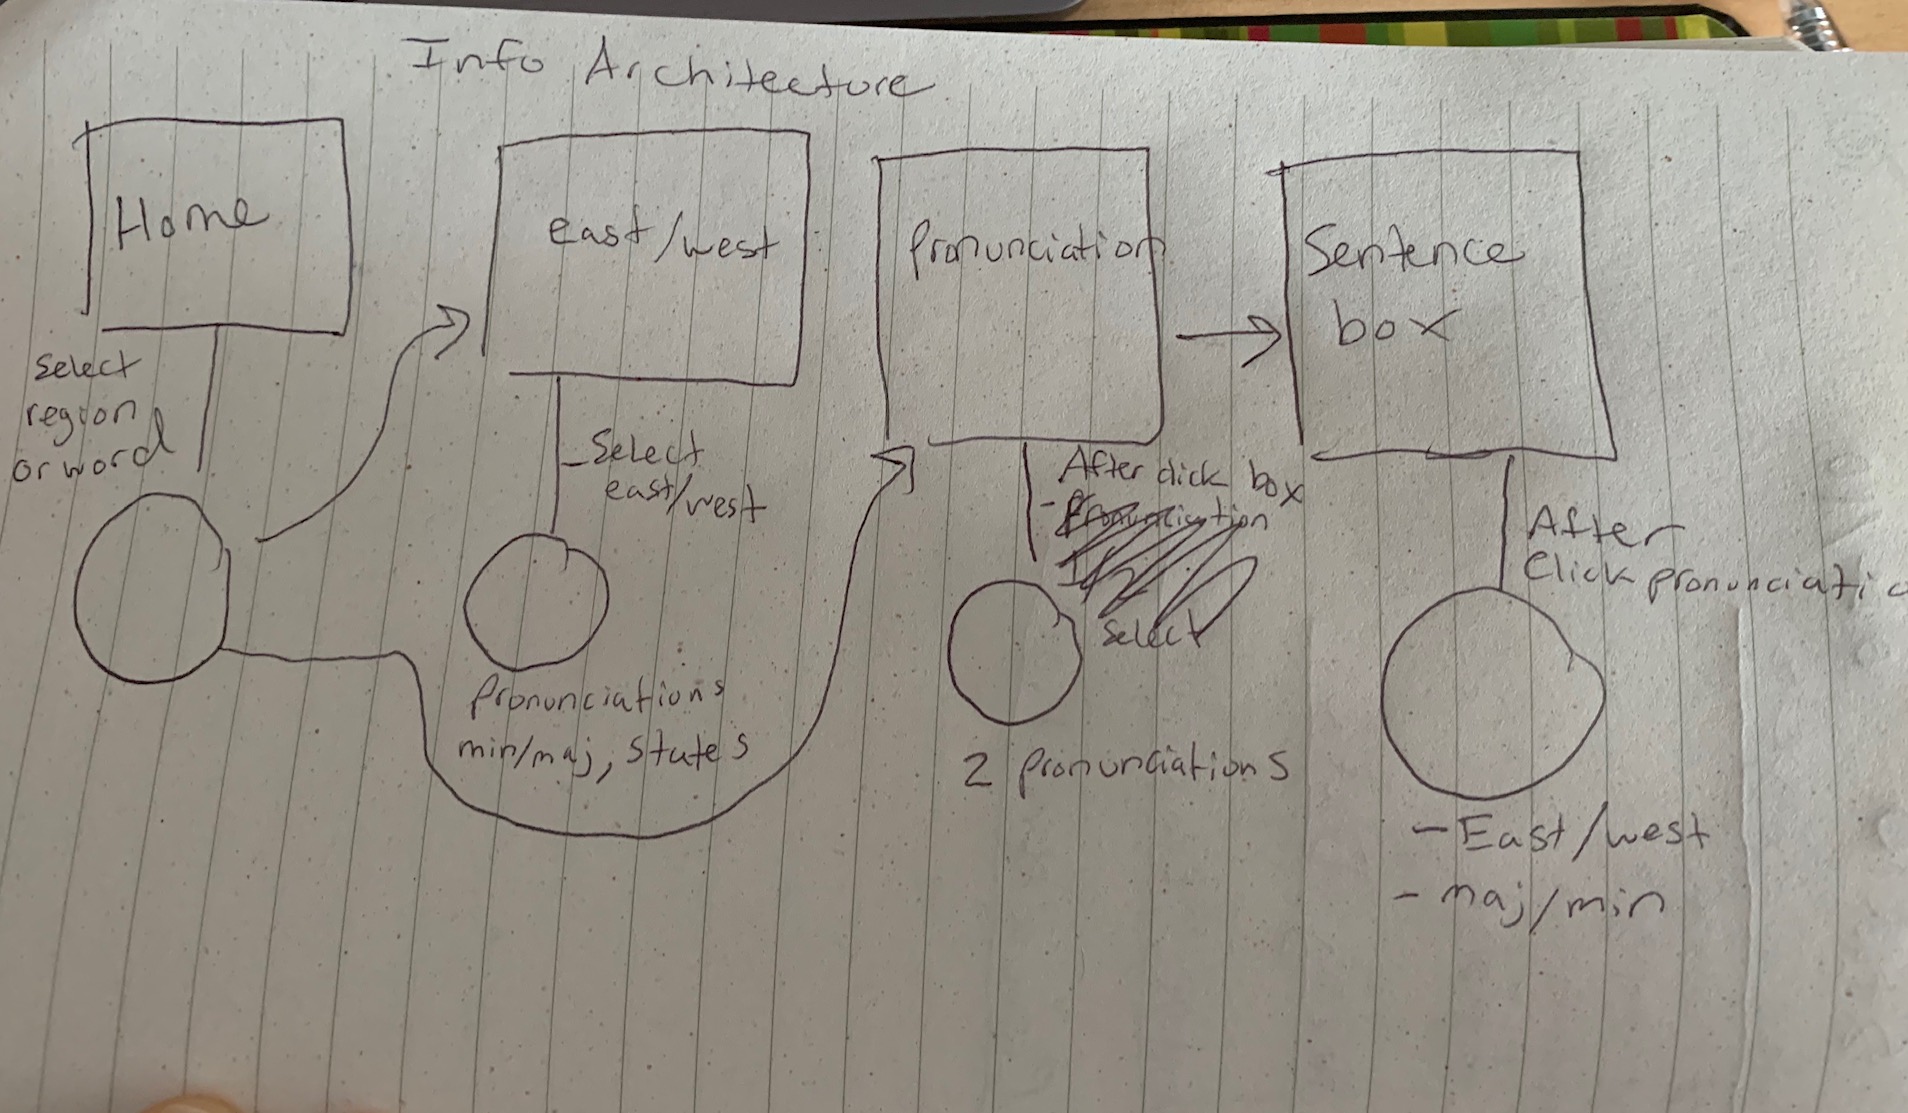 Info Architecture
Home
Select
region
or word
east/west
- Select
east/west
Pronunciations
min/maj, states
Pronunciation
After click box
- Pronunciation
Select
2 pronunciations
Sentence
box
After
Click pronunciatio
- East/west
- maj/min